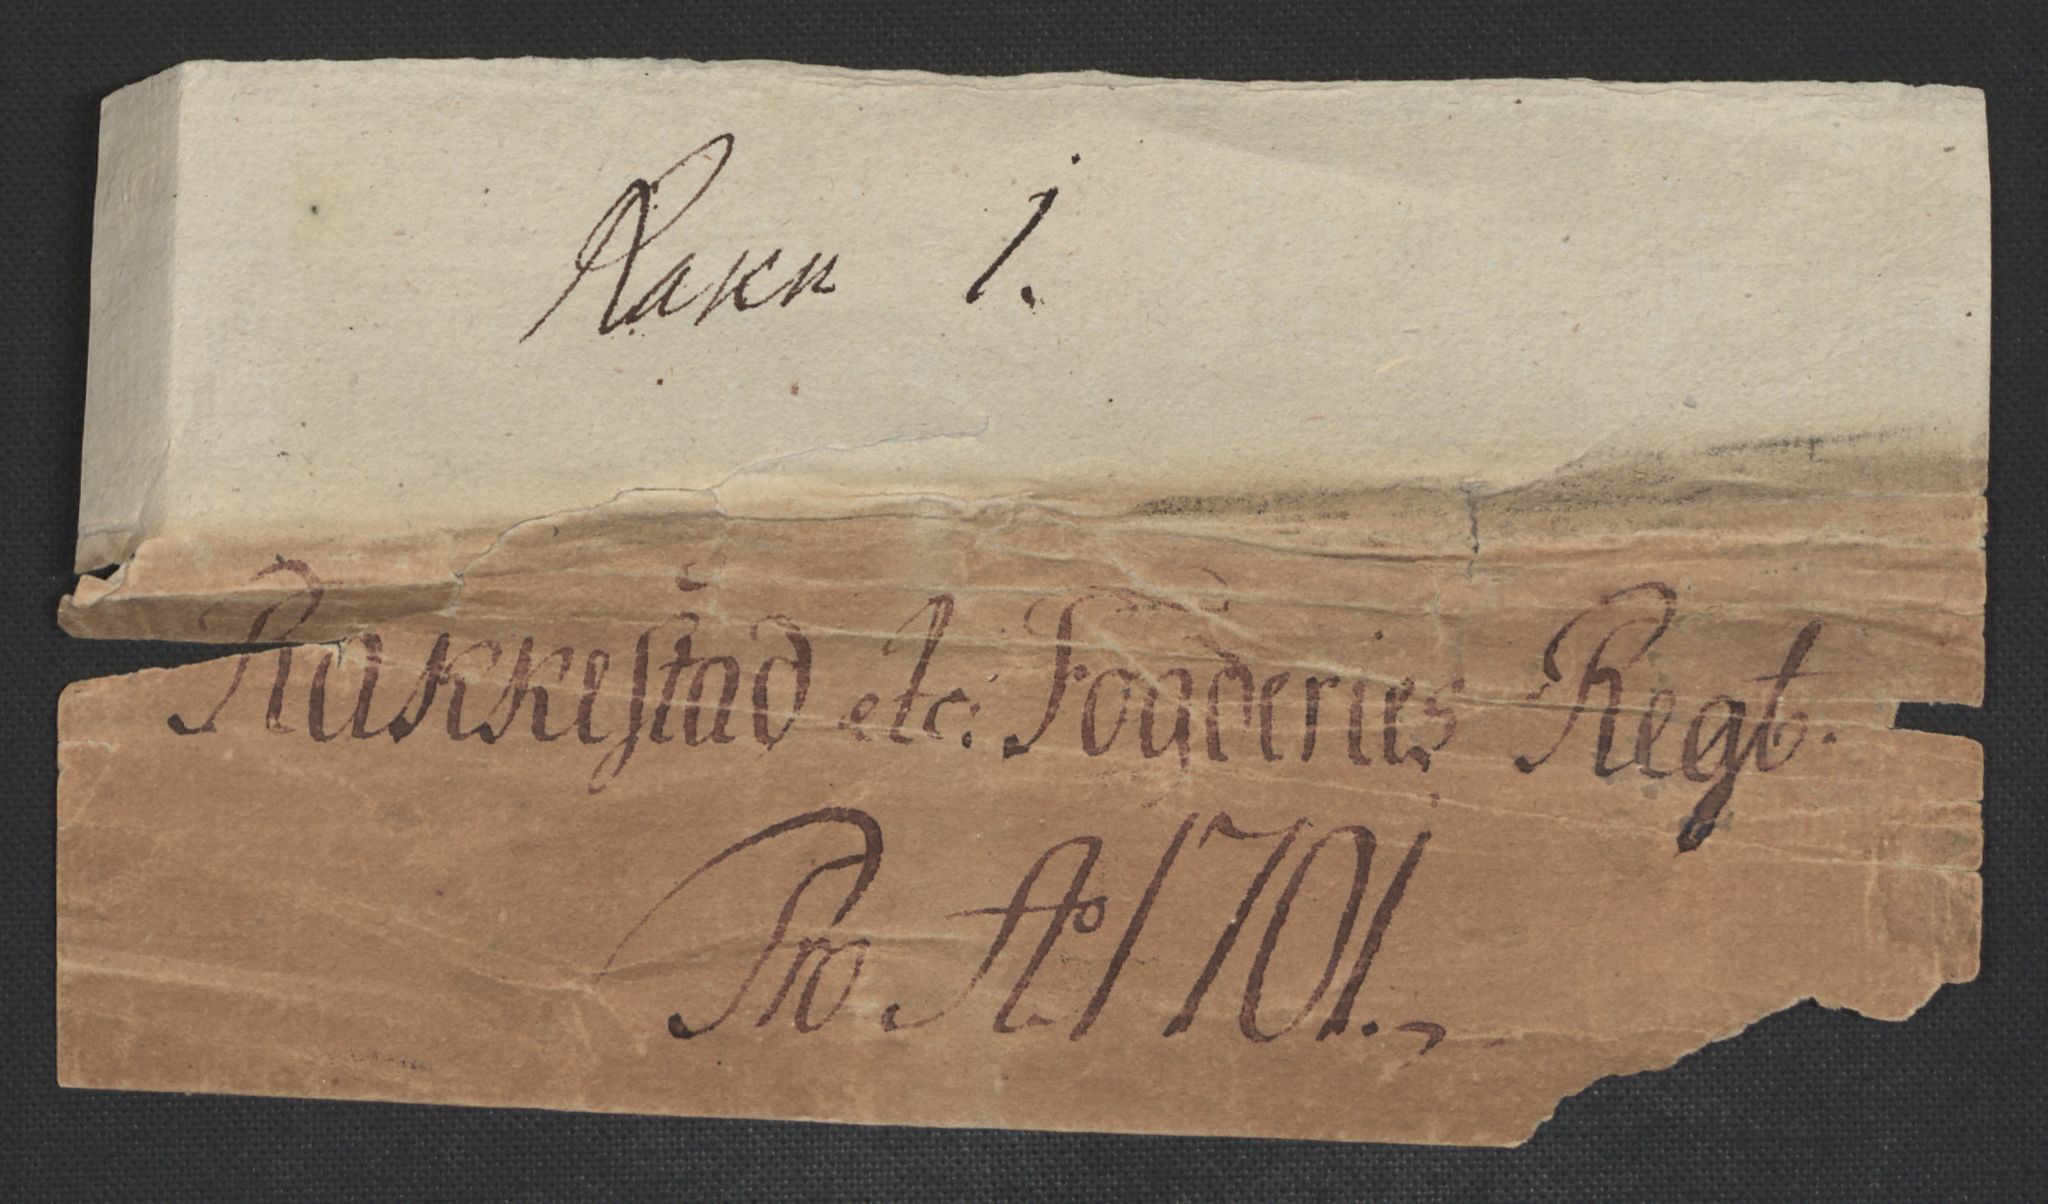 Rakk 1.
Rakkestad etc: Fogderies Regb.
Pro Ao 1701.